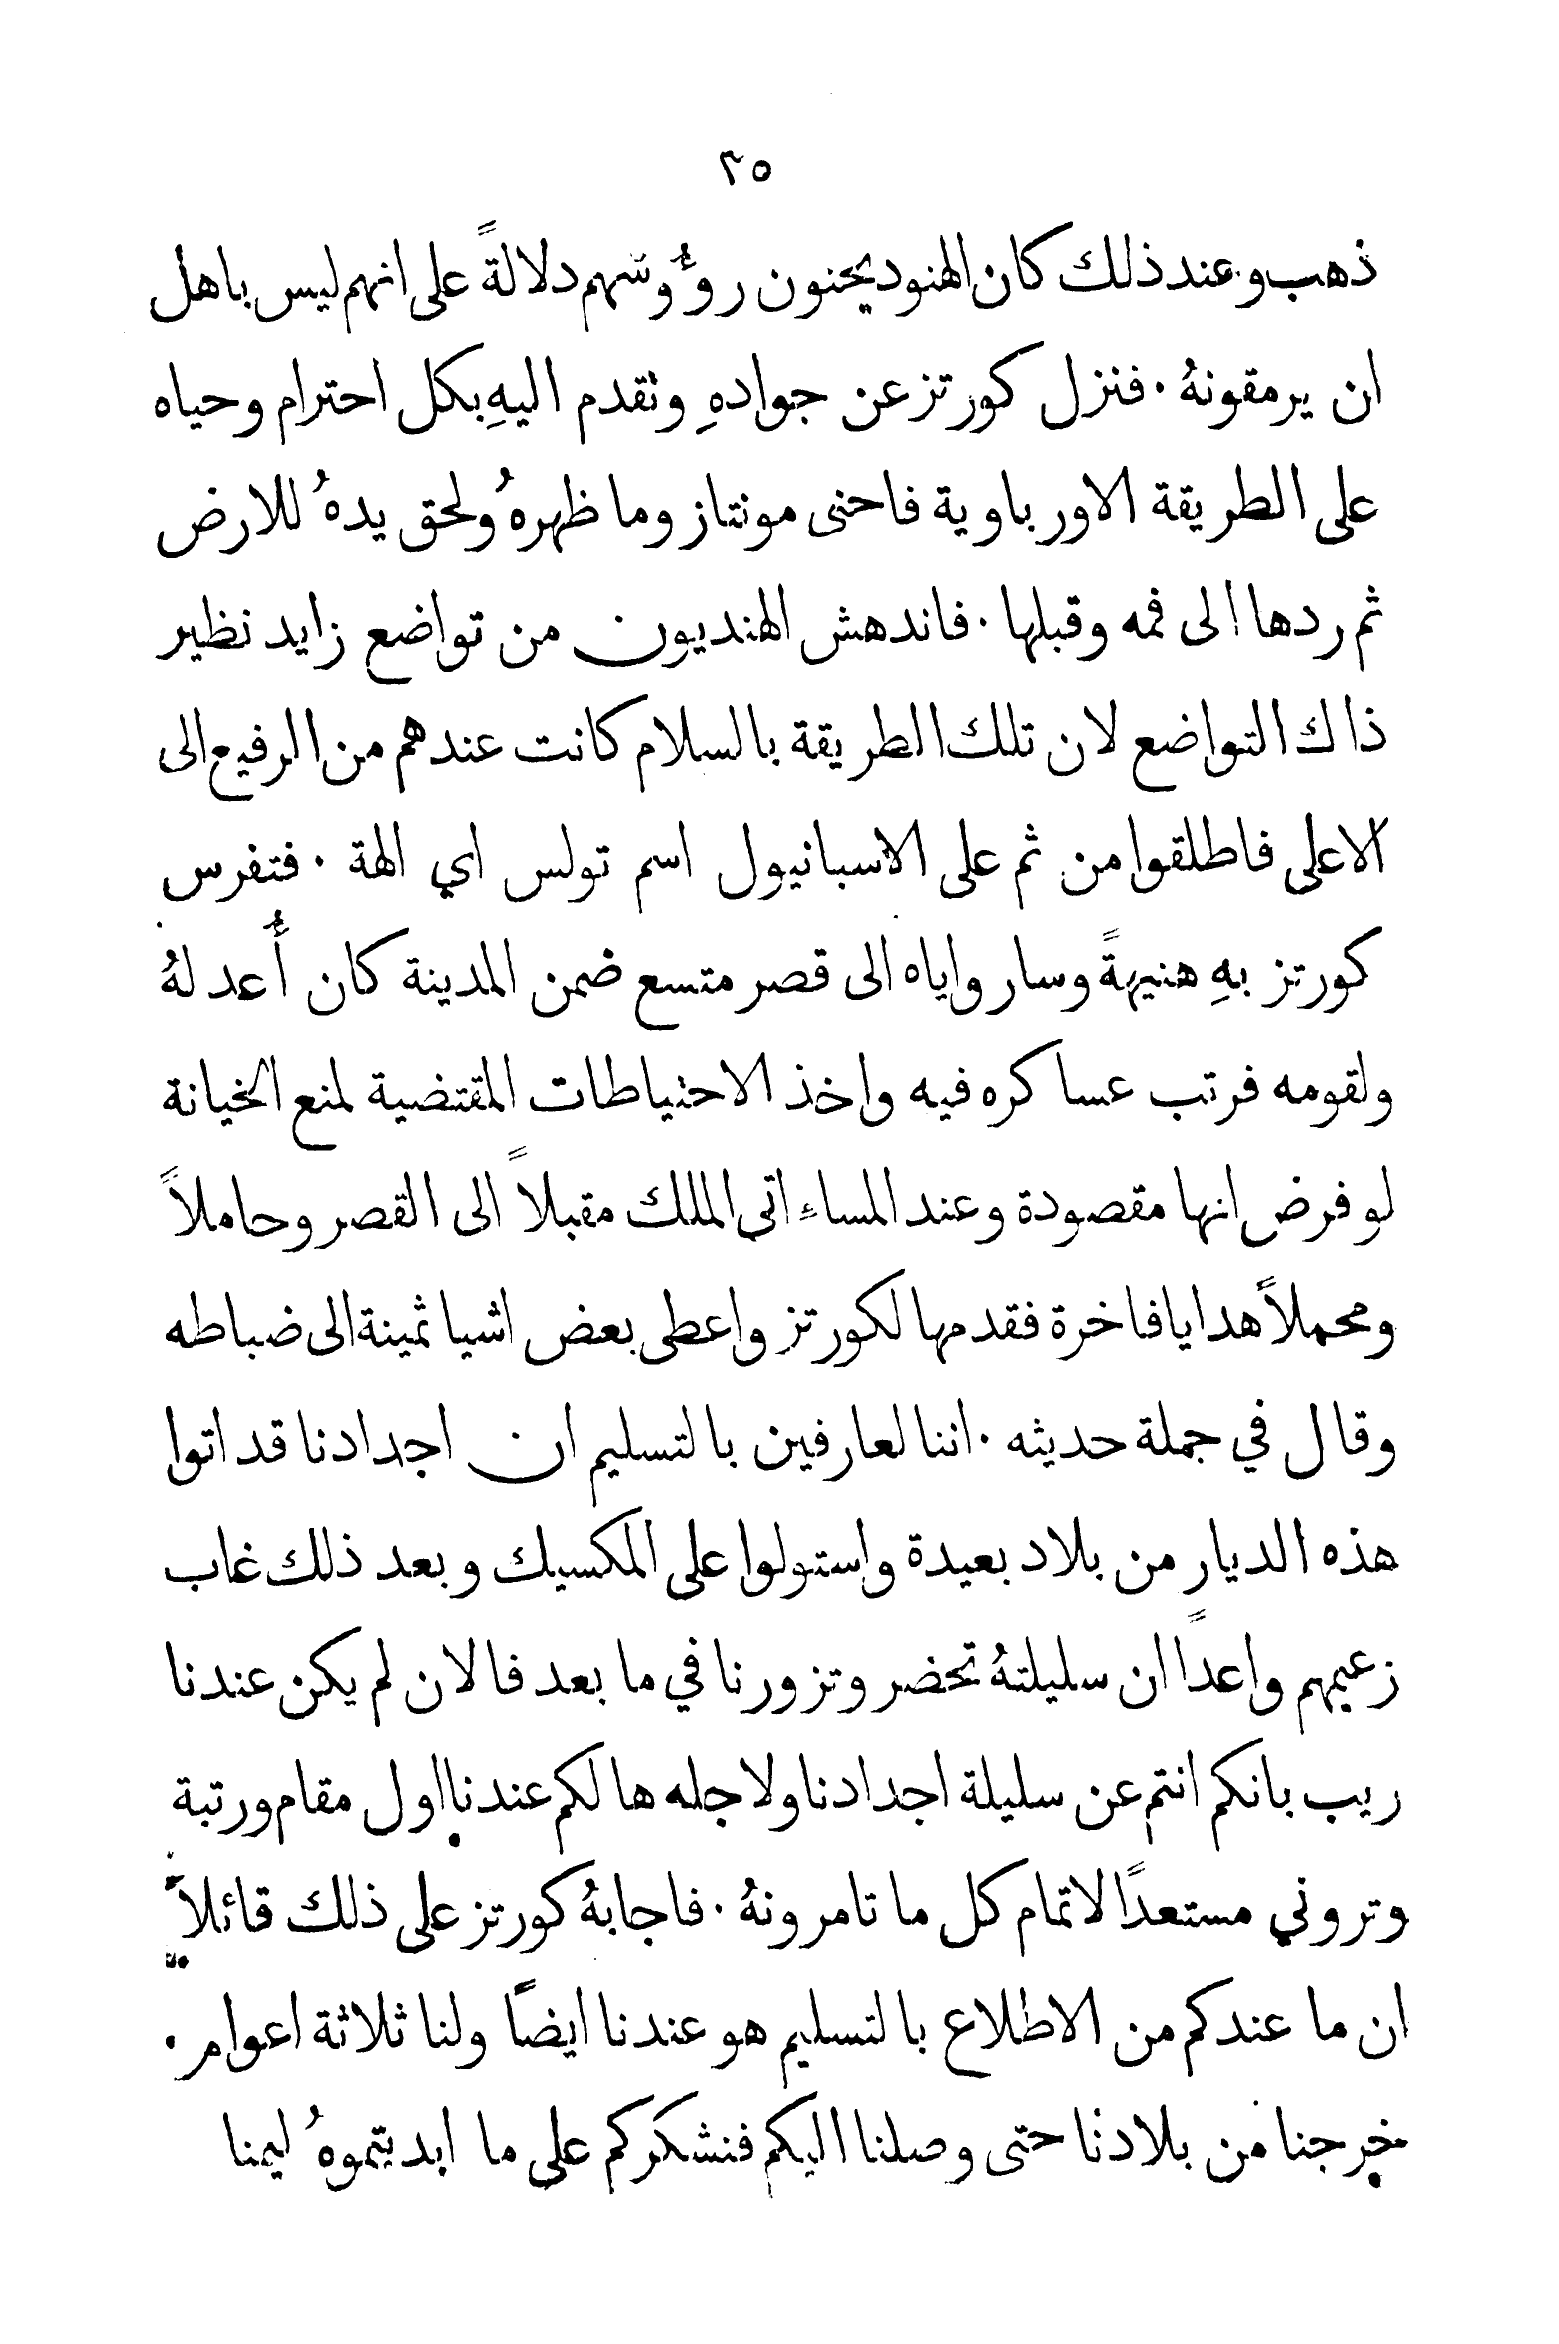 ٣٥
ذهب وعند ذلك كان الهنود يحنون رؤُوسهم دلالةً على انهم ليس باهل
ان يرمقونهُ ٠ فنزل كورتز عن جوادهِ وتقدم اليهِ بكل احترام وحياه
على الطريقة الاورباوية فاحنى مونتازوما ظهرهُ ولحق يدهُ للارض
ثم ردها الى فمه وقبلها ٠ فاندهش الهنديون من تواضع زايد نظير
ذاك التواضع لان تلك الطريقة بالسلام كانت عندهم من الرفيع الى
الاعلى فاطلقوا من ثم على الاسبانيول اسم تولس اي الهة ٠ فتفرس
كورتز بهِ هنيهةً وسار واياه الى قصر متسع ضمن المدينة كان أُعد لهُ
ولقومه فرتب عساكره فيه واخذ الاحتياطات المقتضية لمنع الخيانة
لو فرض انها مقصودة وعند المساءِ اتى الملك مقبلاً الى القصر وحاملاً
ومحملاً هدايا فاخرة فقدمها لكورتز واعطى بعض اشيا ثمينة الى ضباطه
وقال في جملة حديثه ٠ اننا لعارفين بالتسليم ان اجدادنا قد اتوا
هذه الديار من بلاد بعيدة واستولوا على المكسيك وبعد ذلك غاب
زعيمهم واعدًا ان سليلتهُ تحضر وتزورنا في ما بعد فالان لم يكن عندنا
ريب بانكم انتم عن سليلة اجدادنا ولاجله ها لكم عندنا اول مقام ورتبة
وتروني مستعدًا لاتمام كل ما تامرونهُ ٠ فاجابهُ كورتز على ذلك قائلاً
ان ما عندكم من الاطلاع بالتسليم هو عندنا ايضًا ولنا ثلاثة اعوام ٠
خرجنا من بلادنا حتى وصلنا اليكم فنشكركم على ما ابديتموهُ ليمنا